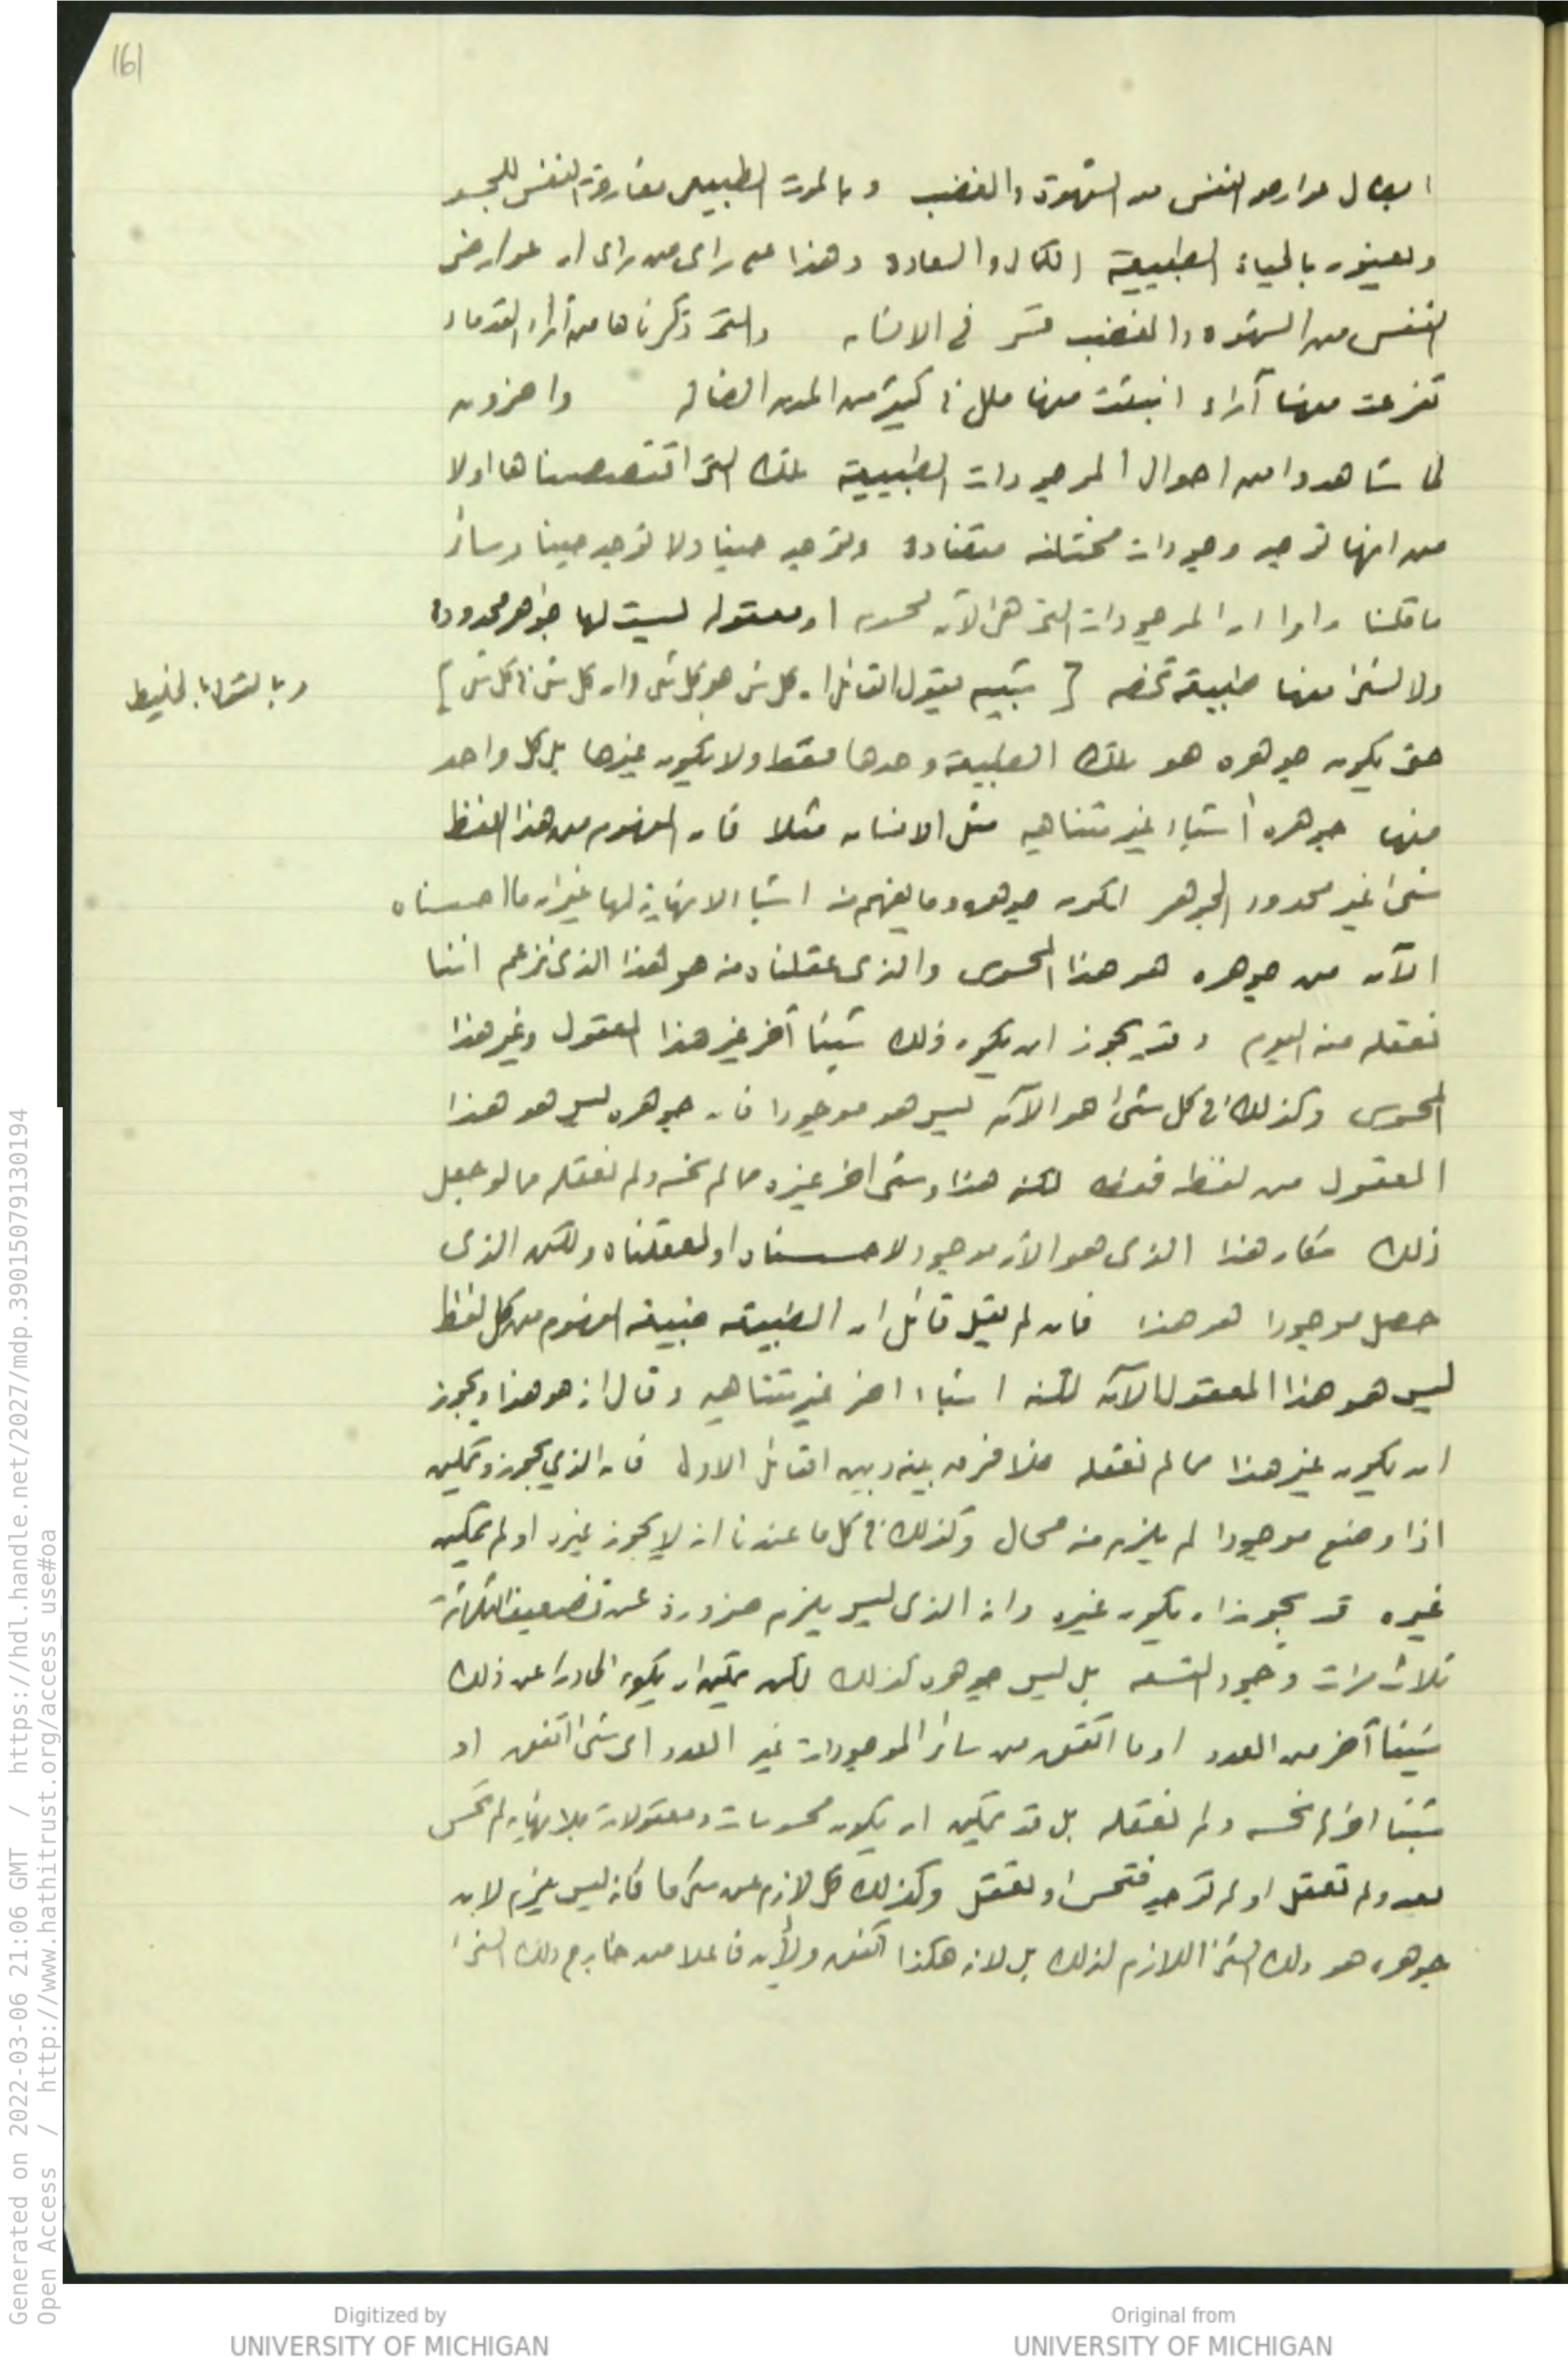 161
ابطال عوارض النفس من الشهوة والغضب وبالموت الطبيعى مفارقة النفس للجسد
ويعنون بالحياة الطبيعية الكمال والسعادة وهذا على راى من راى ان عوارض
النفس من الشهوة والغضب قسر فى الانسان والتى ذكرناها من آراء القدماء
تفرعت منها آراء انبثت منها ملل فى كثير من المدن الضالة واخرون
لما شاهدوا من احوال الموجودات الطبيعية تلك التى اقتصصناها اولا
من انها توجد وجودات مختلفة متضادة وتوجد حينا ولا توجد حينا وسائر
ما قلنا راوا ان الموجودات التى هى الآن محسوسة او معقولة ليست لها جواهر محدودة
ولا لشئ منها طبيعة تخصه [ شبيه بقول القائل ان كل شئ هو كل شئ وان كل شئ فى كل شئ ]
حتى يكون جوهره هو تلك الطبيعة وحدها فقط ولا يكون غيرها بل كل واحد
منها جوهره أشياء غير متناهيه مثل الانسان مثلا فان المفهوم من هذا اللفظ
شئ غير محدود الجوهر لكون جوهره وما يفهم منه اشياء لا نهاية لها غير ان ما احسسناه
الآن من جوهره هو هذا المحسوس والذى عقلناه منه هو هذا الذى نزعم اننا
نعقله منه اليوم وقد يجوز ان يكون ذلك شيئا آخر غير هذا المعقول وغير هذا
المحسوس وكذلك فى كل شئ هو الآن ليس هو موجودا فان جوهره ليس هو هذا
المعقول من لفظه فقط لكنه هذا وشئ اخر غيره مما لم نحسه ولم نعقله مما لو جعل
ذلك مكان هذا الذى هو الآن موجود لاحسسناه او لعقلناه ولكن الذى
حصل موجودا هو هذا فان لم يقل قائل ان الطبيعة طبيعة المفهوم من كل لفظ
ليس هو هذا المعقول الآن لكنه اشياء اخر غير متناهيه وقال انه هو هذا ويجوز
ان يكون غير هذا مما لم نعقله فلا فرق بينه وبين القائل الاول فان الذي يجوز ويمكن
اذا وضع موجودا لم يلزم منه محال وكذلك فى كل ما عندنا انه لا يجوز غيره او لم يمكن
غيره قد يجوز ان يكون غيره وان الذى ليس يلزم ضرورة عن تضعيف الثلاثة
ثلاث مرات وجود التسعه بل ليس جوهره كذلك لكن يمكن ان يكون الحادث عن ذلك
شيئا آخر من العدد او ما اتفق من سائر الموجودات غير العدد اى شئ اتفق او
شيئا اخر لم نحسه ولم نعقله بل قد يمكن ان يكون محسوسات ومعقولات بلا نهاية لم تحس
بعد ولم تعقل او لم توجد فتحس او تعقل وكذلك كل لازم عن شئ ما فانه ليس يلزم لان
جوهره هو ذلك الشئ اللازم لذلك بل لانه هكذا اتفق ولأن فاعلا من خارج ذلك الشئ
Generated on 2022-03-06 21:06 GMT / https://hdl.handle.net/2027/mdp.39015079130194
Open Access / http://www.hathitrust.org/access_use#oa
Digitized by
UNIVERSITY OF MICHIGAN
Original from
UNIVERSITY OF MICHIGAN